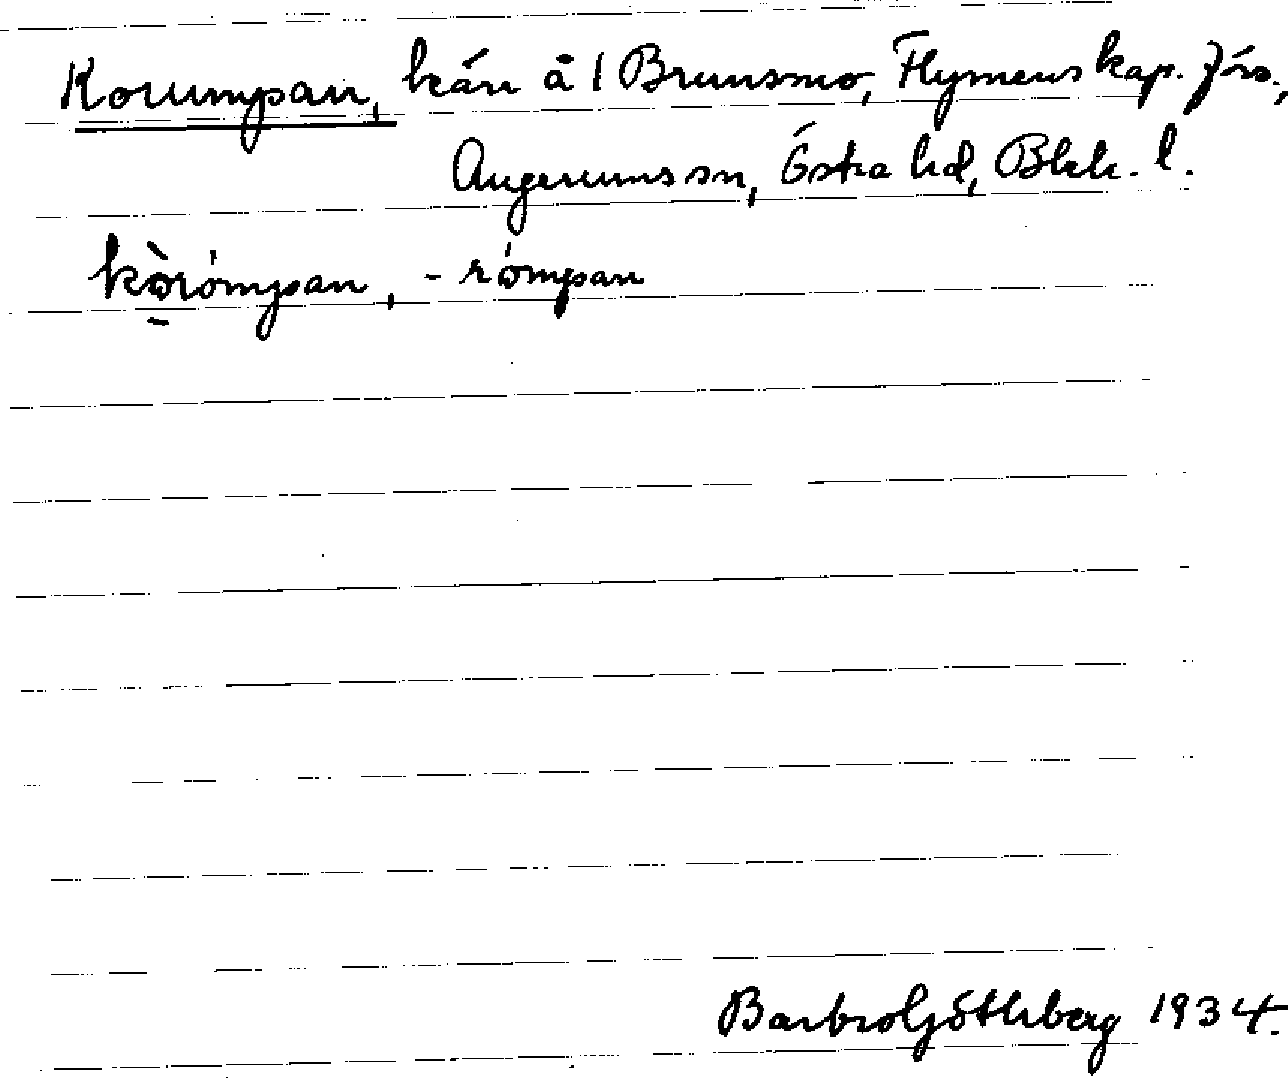 Korumpan, kärr å 1 Brunsmo, Flymens kap. förs.,
Augerums sn, Östra hd, Blek. l.
kòrómpan, - rómpan
Barbro Götherberg 1934.